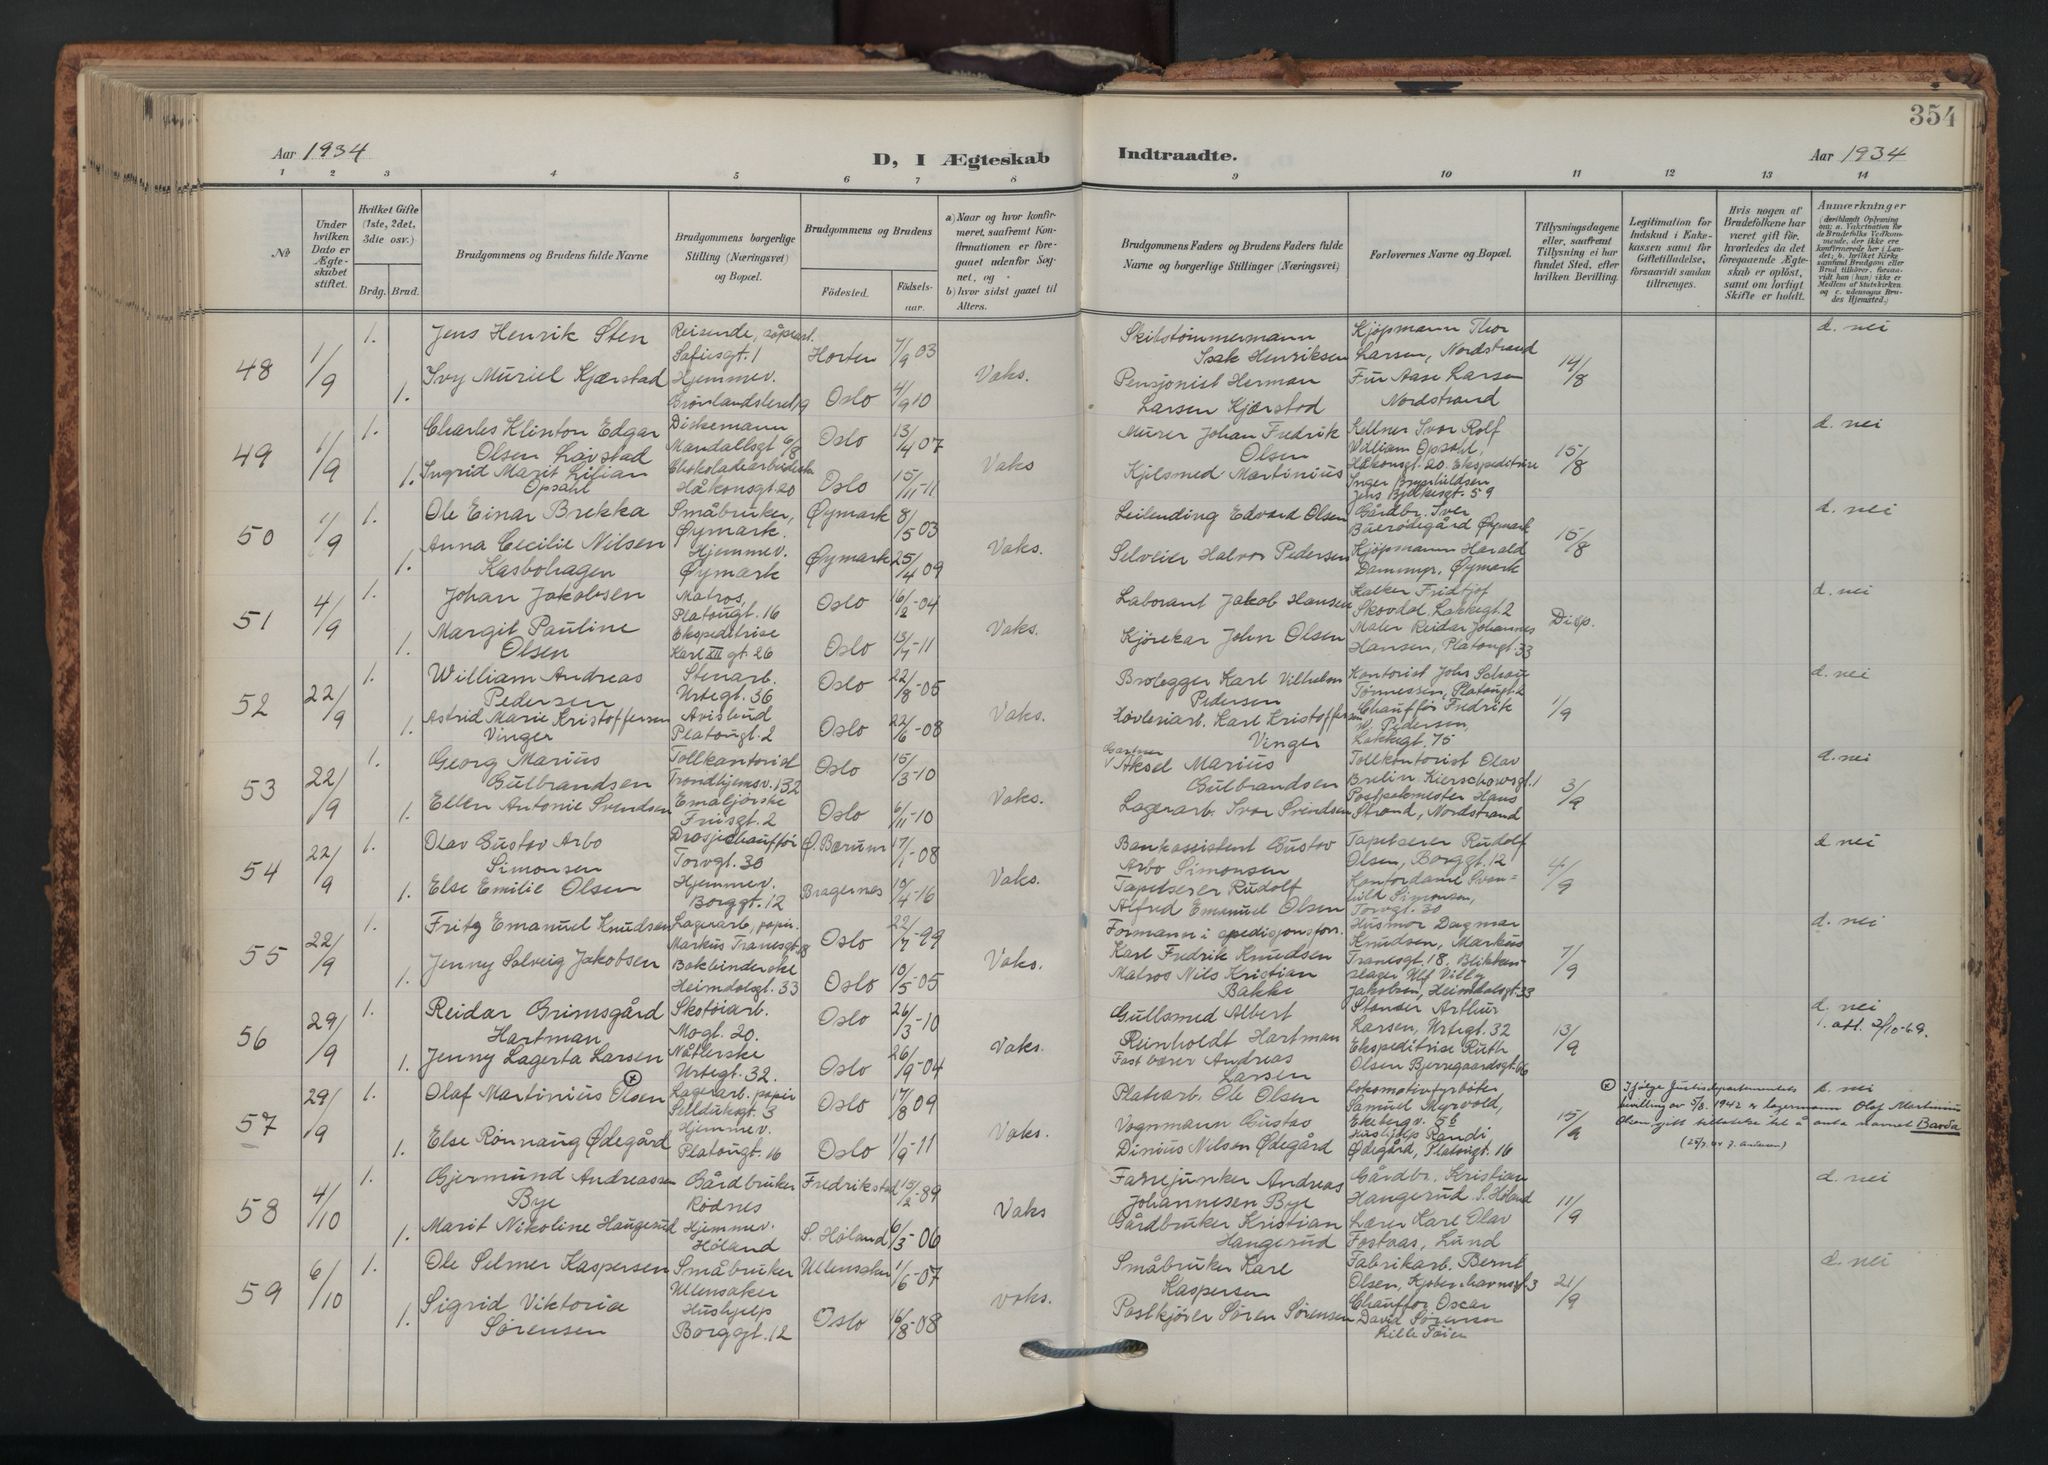 354
Aar 1934
D, I Ægteskab
Indtraadte.
Aar 1934
1 2 3 4 5 6 7 8 9 10 11 12 13 14
No
Under hvilken Dato er Ægteskabet stiftet.
Hvilket Gifte (1ste, 2det, 3die osv.)
Brdg. Brud.
Brudgommens og Brudens fulde Navne
Brudgommens borgerlige Stilling (Næringsvei) og Bopæl.
Brudgommens og Brudens
Fødested. Fødselsaar.
a) Naar og hvor konfirmeret, saafremt Konfirmationen er foregaaet udenfor Sognet, og
b) hvor sidst gaaet til Alters.
Brudgommens Faders og Brudens Faders fulde Navne og borgerlige Stillinger (Næringsvei)
Forlovernes Navne og Bopæl.
Tillysningsdagene eller, saafremt Tillysning ei har fundet Sted, efter hvilken Bevilling.
Legitimation for Indskud i Enkekassen samt for Giftetilladelse, forsaavidt saadan tiltrænges.
Hvis nogen af Brudefolkene har været gift før, hvorledes da det foregaaende Ægteskab er opløst, samt om lovligt Skifte er holdt.
Anmærkninger
48 1/9 1. Jens Henrik Sten
Reisende,
Sofiesgt. 1 Horten 7/9 03
Skibstømmermann
Isak Henriksen
Kjøpmann Thor
Larsen, Nordstrand
14/8 d. nei
1. Ivy Muriel Kjærstad
Hjemmev.
Grønlandsleret 19 Oslo 4/9 10 Vaks.
Pensjonist Herman
Larsen Kjærstad
Fru Aase Larsen
Nordstrand
49 1/9 1. Charles Klinton Edgar
Olsen Lavstad
Diskemann
Mandallsgt 6/8 Oslo 13/4 07
Murer Johan Fredrik
Olsen
Kellner Ivar Rolf
William Opsahl,
15/8 d. nei
1. Ingrid Marit Lilian
Opsahl
Chokoladearbeiderske
Håkonsgt. 20 Oslo 15/11-11 Vaks
Kjelsmed Martinius
Håkonsgt. 20. Ekspeditrise
Inger
Jens Bjelkesgt. 59
50 1/9 1. Ole Einar Brekka
Småbruker,
Øymark. Øymark 8/5 03
Leilending Edvard Olsen
Gårdbr. Iver
Buerødegård Øymark
15/8 d. nei
1. Anna Cecilie Nilsen
Kasbohagen
Hjemmev.
Øymark Øymark 25/4 09 Vaks.
Selveier Halvor Pedersen
Kjøpmann Harald
Dammyr, Øymark
51 4/9 1. Johan Jakobsen
Matros,
Platougt. 16 Oslo 16/2-04
Laborant Jakob Hansen
Fridtjof
Skovdal Lakkegt. 2
Disp. d. nei
1. Margit Pauline
Olsen
Ekspeditrise
Karl XII gt. 26 Oslo 13/7-11 Vaks.
Kjørekar John Olsen
Maler Reidar Johannes
Hansen, Platougt. 33
52 22/9 1. William Andreas
Pedersen
Stenarb.
Urtegt. 36 Oslo 22/8-05
Brolegger Karl Vilhelm
Pedersen
Kontorist John
Tønnessen, Platougt. 2
1/9 d. nei
1. Astrid Marie Kristoffersen
Vinger
Avisbud
Platougt. 2 Oslo 22/6-08 Vaks.
Høvleriarb. Karl Kristoffersen
Vinger
Chauffør Fredrik
W. Pedersen,
Lakkegt. 75
53 22/9 1. Georg Marius
Gulbrandsen
Tollkantorist
Trondhjemsv. 132 Oslo 15/3-10
Gartner
Aksel Marius
Gulbrandsen
Tollkontorist Olav
Brelin, Kierschowsgt. 1
3/9 d. nei
1. Ellen Antonie Svendsen
Emaljørske
Friisgt. 2 Oslo 6/11-10 Vaks.
Lagerarb. Ivar Svendsen
Postpakmester Hans
Strand, Nordstrand
54 22/9 1. Olav Gustav Arbo
Simonsen
Drosjechauffør
Torvgt. 30 Ø. Bærum 17/1-08
Bankassistent Gustav
Arbo Simonsen
Tapetserer Rudolf
Olsen, Borggt. 12
4/9 d nei
1. Else Emilie Olsen
Hjemmev.
Borggt. 12 Bragernes 10/4-16 Vaks.
Tapetserer Rudolf
Alfred Emanuel Olsen
Kontordame Svanhild Simonsen,
Torvgt. 30
55 22/9 1. Fritz Emanuel Knudsen
Lagerarb, papir.
Markus Tranesgt. 18 Oslo 22/7-99
Formann i spedisjonsforr.
Karl Fredrik Knudsen
Husmor Dagmar
Knudsen, Markus
Tranesgt. 18,
7/9 d. nei
1. Jenny Solveig Jakobsen
Bokbinderske
Heimdalsgt. 33 Oslo 10/5-05 Vaks.
Matros Nils Kristian
Bakke
Blikkenslager Ulf Villy
Jakobsen, Heimdalsgt. 33
56 29/9 1. Reidar Grimsgård
Hartman
Skotøiarb.
Mogt. 20. Oslo 26/3-10
Gullsmed Albert
Reinholdt Hartman
Arthur
Larsen, Urtegt. 32
13/9 d. nei
1. att. 2/10-69.
1. Jenny Lagerta Larsen
Nåtlerske
Urtegt. 32. Oslo 26/9-04 Vaks.
Fast bærer Andreas
Larsen
Ekspeditrise Ruth
Olsen Bjerregaardsgt. 66
57 29/9 1. Olaf Martinius Olsen
Lagerarb. papir
Sellduksgt. 3 Oslo 17/8 09
Platearb. Ole Olsen
Lokomotivfyrbøter
Samuel Myrvold,
Ekebergv. 56
15/9 d. nei
Ifølge Justisdepartementets
bevilling av 5/8. 1942 er lagermann Olaf Martinius
Olsen gitt tillatelse til å anta navnet Barda
1. Else Rønnaug Ødegård
Hjemmev.
Platougt. 16 Oslo 1/9-11 Vaks.
Vognmann Gustav
Dinius Nilsen Ødegård
Hushjelp Randi
Ødegård, Platougt. 16
58 4/10 1. Gjermund Andreassen
Bye
Gårdbruker
Rødnes Fredrikstad 15/2-89
Farrejunker Andreas
Johannesen Bye
Gårdbr. Kristian
Hangerud S. Høland
11/9 d. nei
1. Marit Nikoline Haugerud
Hjemmev.
Høland S. Høland 6/3-06 Vaks
Gårdbruker Kristian
Hangerud
Lærer Karl Olav
Fostaas, Lund
59 6/10 1. Ole Selmer Kaspersen
Småbruker
Ullensaker Ullensaker 1/6-07
Småbruker Karl
Kaspersen
Fabrikarb. Bernt
Olsen, Kjøbenhavnsgt. 3
21/9 d. nei
1. Sigrid Viktoria
Sørensen
Hushjelp
Borggt. 12 Oslo 16/8-08 vaks.
Postkjører Søren Sørensen
Chauffør Oscar
David Sørensen
Lille Tøien